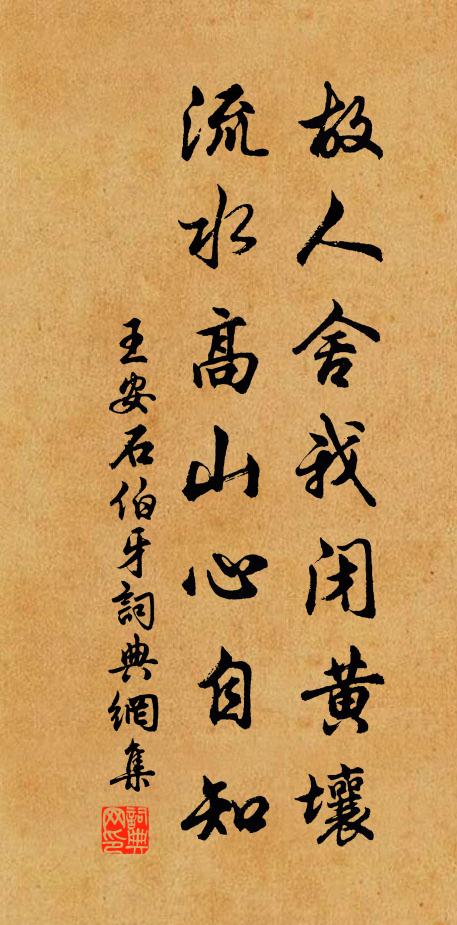 故人舍我闭黄壤
流水高山心自知
王安石伯牙詞典網集
詞典网印